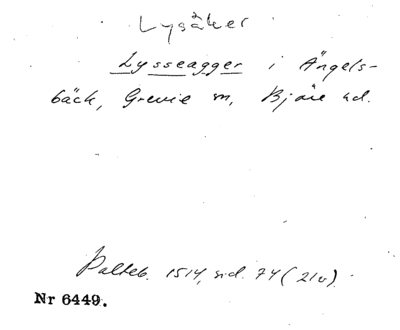 Lysåker
Lysseagger i Ängels-
bäck, Grevie sn, Bjäre hd.
Palteb. 1514, sid. 74 (21v).
Nr 6449.